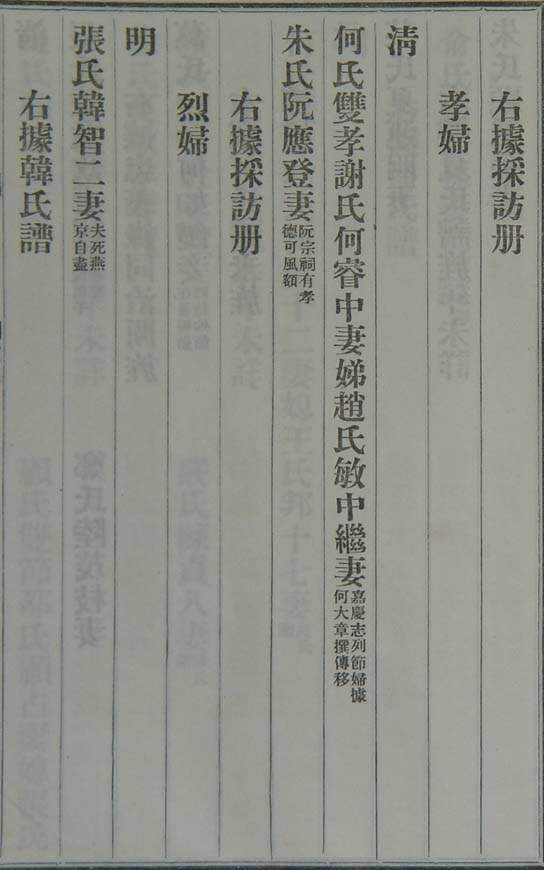 右據採訪册
孝婦
淸
何氏雙孝謝氏何睿中妻娣趙氏敏中繼妻嘉慶志列節婦據何大章撰傳移
朱氏阮應登妻阮宗祠有孝德可風額
右據採訪册
烈婦
明
張氏韓智二妻夫死燕京自盡
右據韓氏譜